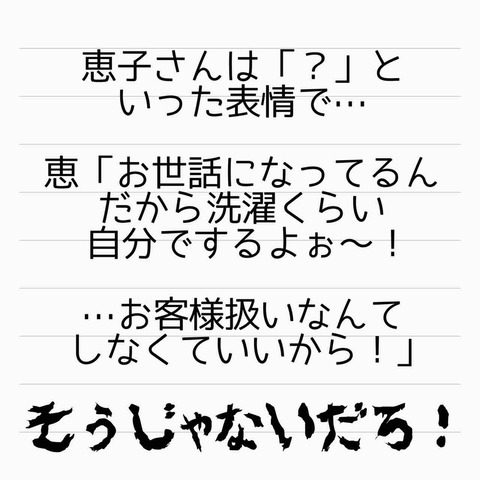 恵子さんは「？」と
いった表情で…
恵「お世話になってるん
だから洗濯くらい
自分でするよぉ〜！
…お客様扱いなんて
しなくていいから！」
そうじゃないだろ！